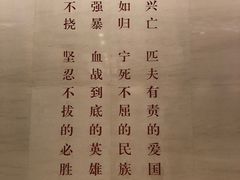 兴亡 匹夫有责的爱国
如归 宁死不屈的民族
强暴 血战到底的英雄
不挠 坚忍不拔的必胜